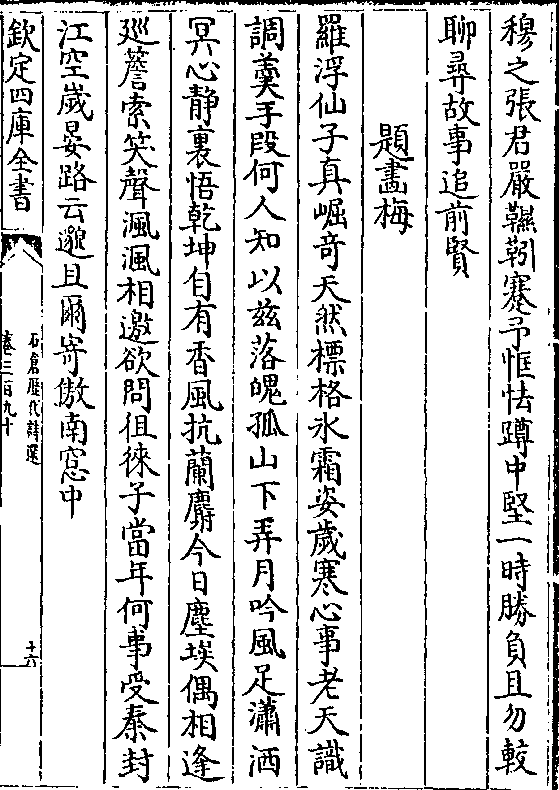 穆之張君嚴鞿靷蹇予恇怯蹲中堅一時勝負且勿較
聊尋故事追前賢
題畫梅
羅浮仙子真崛竒天然標格氷霜姿歲寒心事老天識
調羹手段何人知以兹落魄孤山下弄月吟風足瀟洒
冥心静裏悟乾坤自有香風抗蘭麝今日塵埃偶相逢
廵簷索笑聲渢渢相邀欲問徂徠子當年何事受秦封
江空歲晏路云邈且爾寄傲南窓中
欽定四庫全書
石倉歷代詩選
卷三百九十
十六